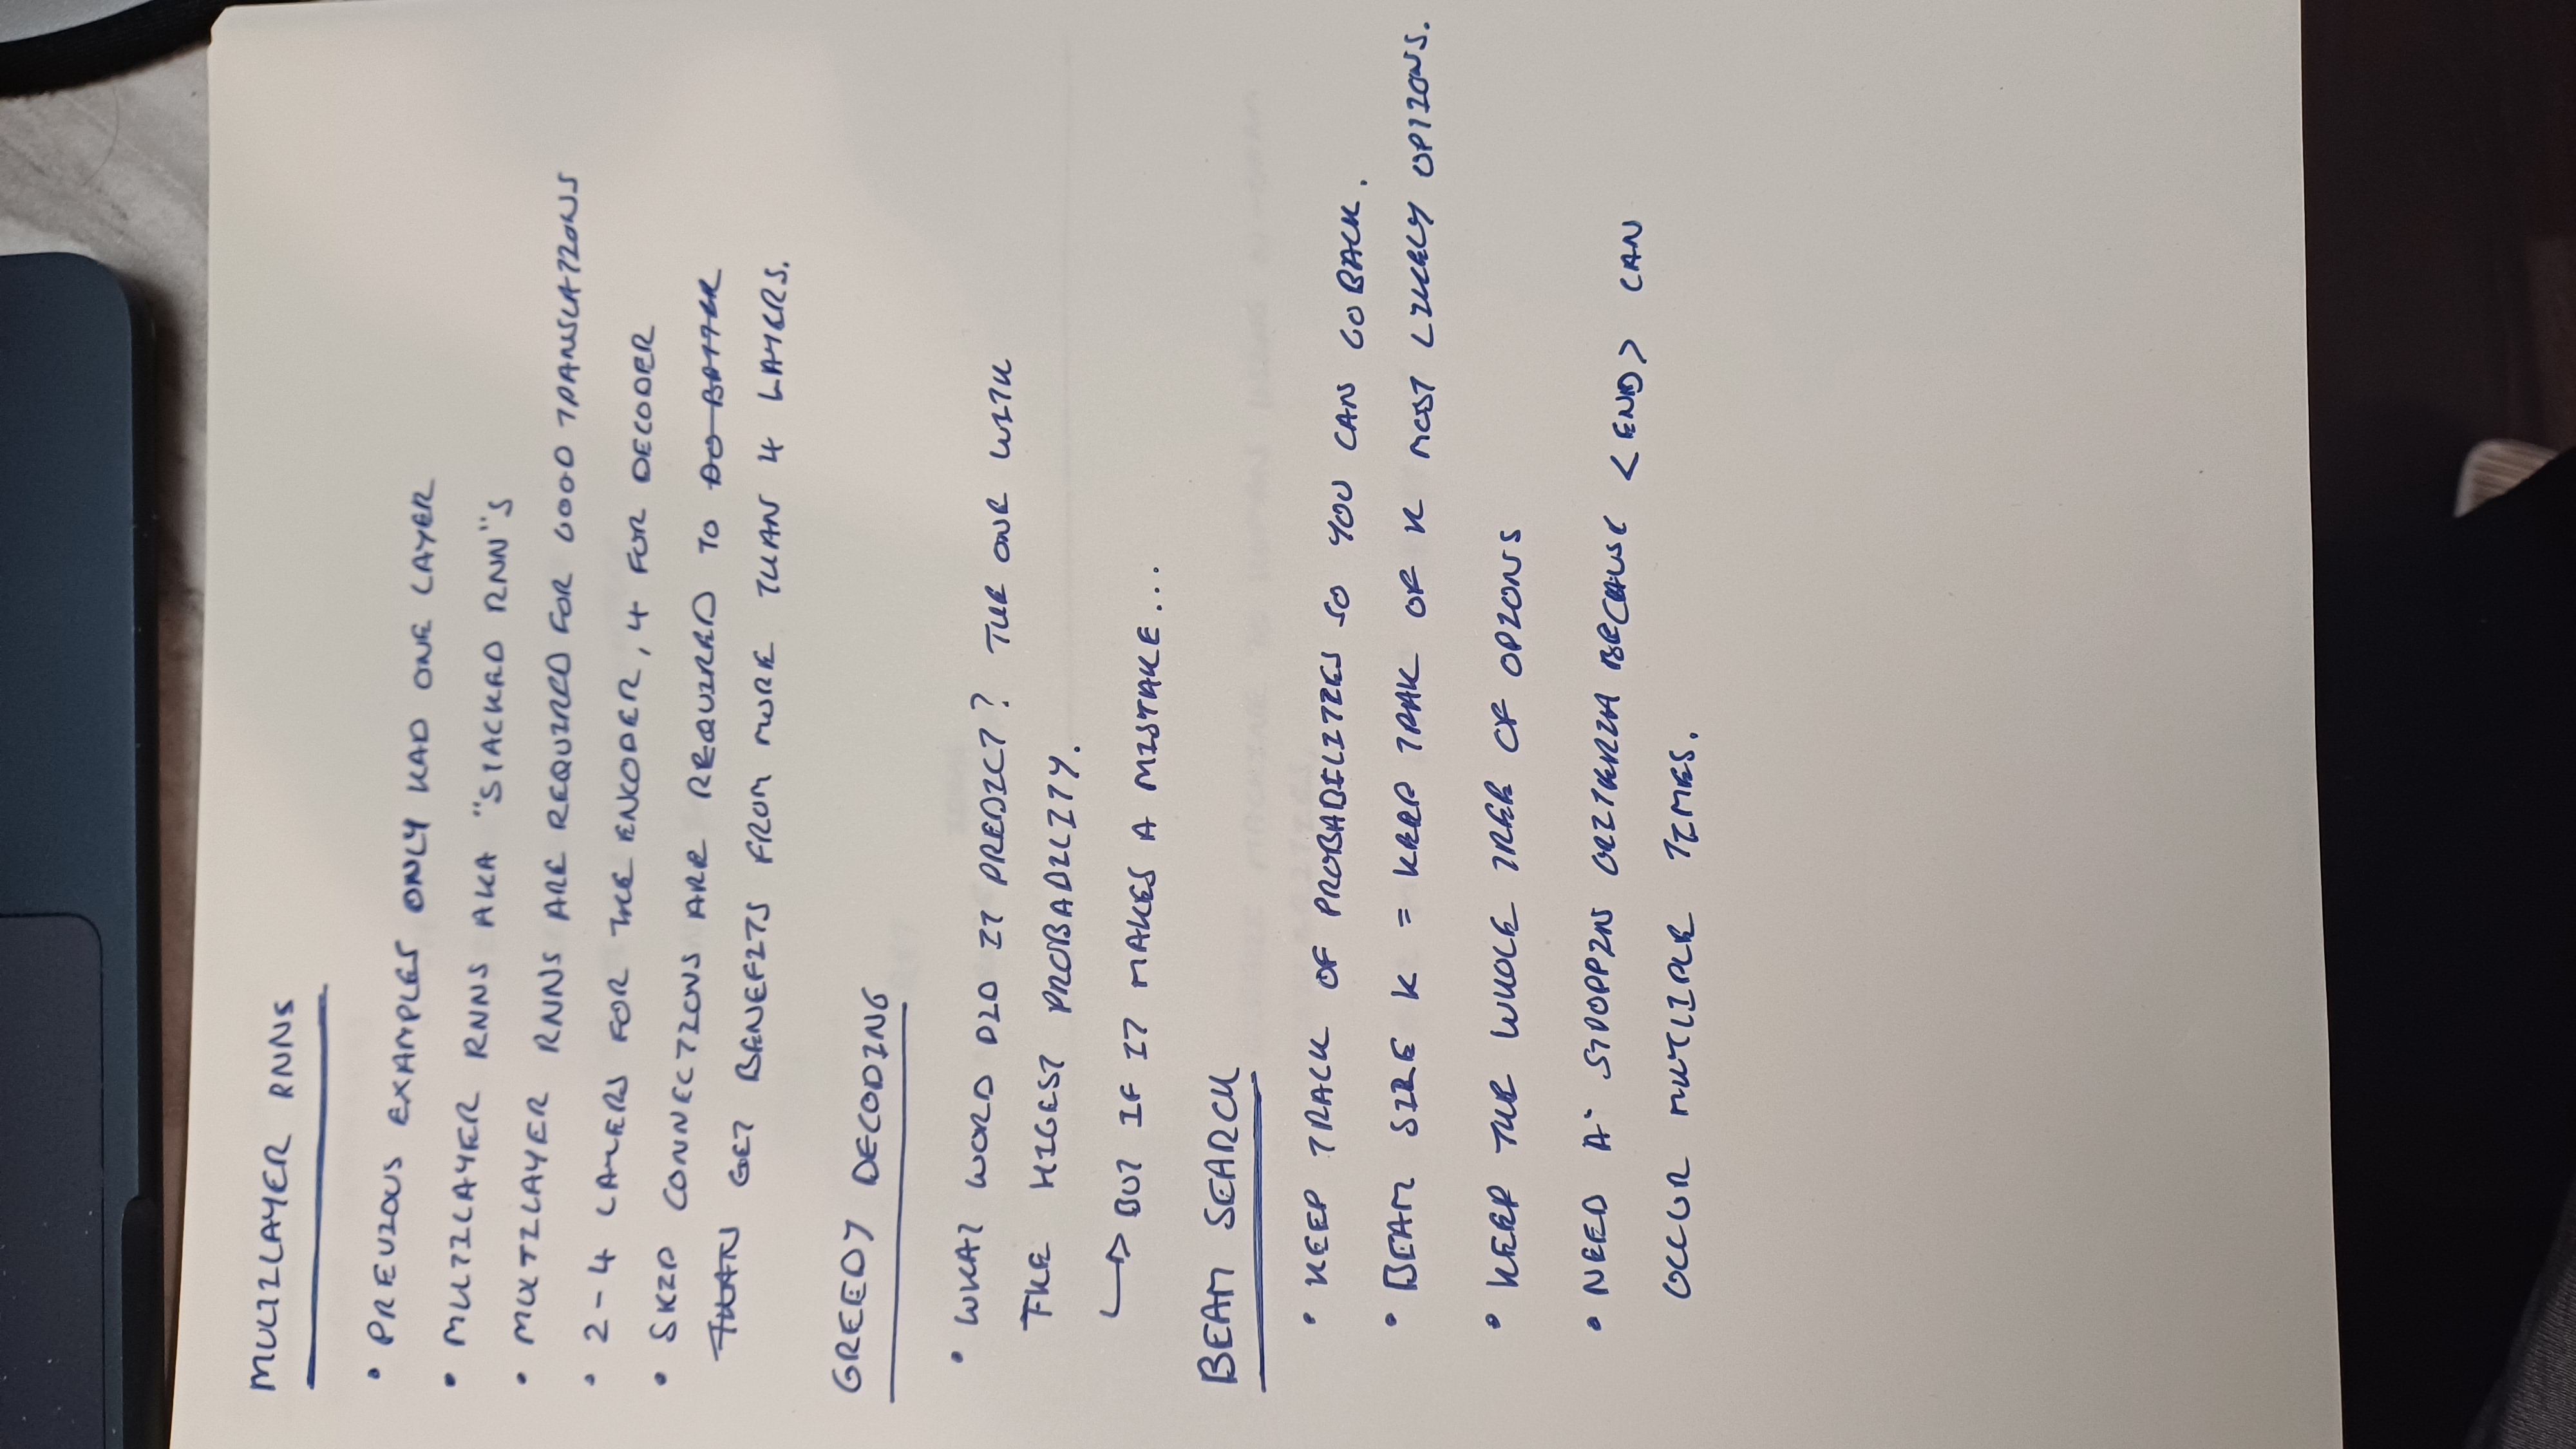 MULTILAYER RNNS
• PREVIOUS EXAMPLES ONLY HAD ONE LAYER
• MULTILAYER RNNS AKA "STACKED RNN"S
• MULTILAYER RNNS ARE REQUIRED FOR GOOD TRANSLATIONS
• 2-4 LAYERS FOR THE ENCODER, 4 FOR DECODER
• SKIP CONNECTIONS ARE REQUIRED TO DO BETTER
THAN GET BENEFITS FROM MORE THAN 4 LAYERS.
GREEDY DECODING
• WHAT WORD DID IT PREDICT? THE ONE WITH
THE HIGEST PROBABILITY.
↳ BUT IF IT MAKES A MISTAKE...
BEAM SEARCH
• KEEP TRACK OF PROBABILITIES SO YOU CAN GO BACK.
• BEAM SIZE K = KEEP TRAK OF K MOST LIKELY OPTIONS.
• KEEP THE WHOLE TREE OF OPIONS
• NEED A STOOPPIN CRITERIA BECAUSE <END> CAN
OCCUR MUTLIPLE TIMES.